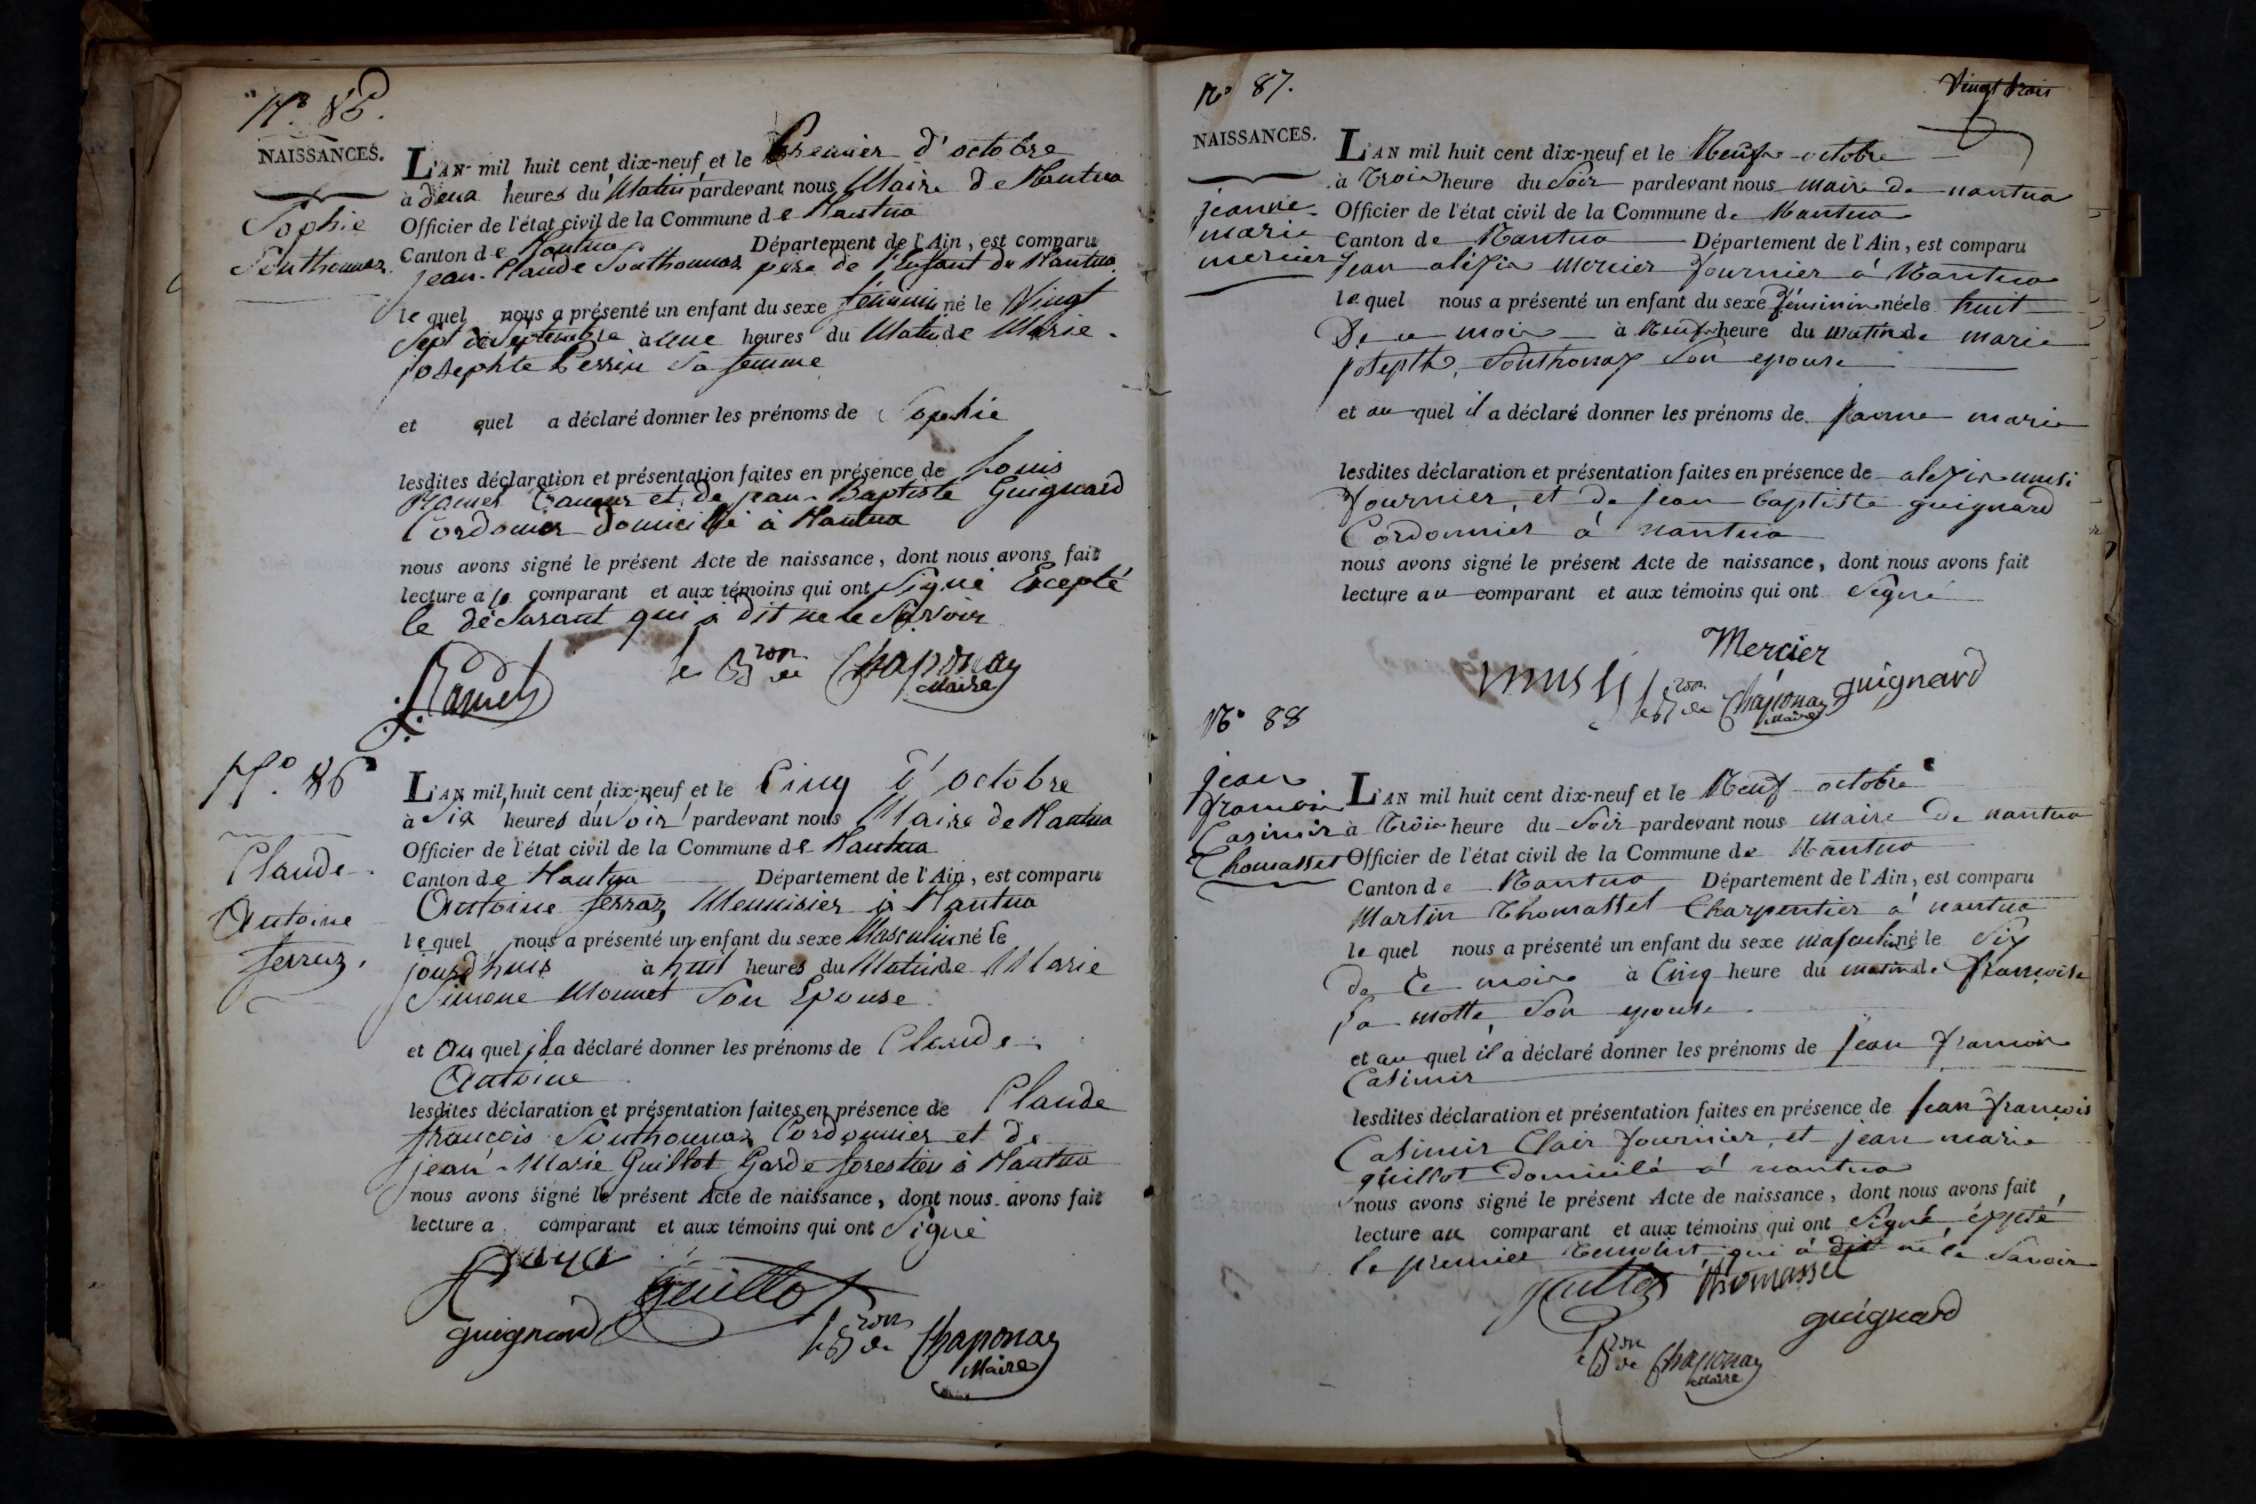 N.° 85.
NAISSANCES.
Sophie
Southonnax.
L'AN mil huit cent dix-neuf et le Premier d'octobre
à deux heures du Matin pardevant nous Maire de Nantua
Officier de l'état civil de la Commune de Nantua
Canton de Nantua Département de l'Ain, est comparu
jean-Claude Southonnax père de l'Enfant de Nantua
le quel nous a présenté un enfant du sexe féminin né le Vingt
Sept de Septembre à une heures du Matin de Marie-
josephte Perrin Sa femme
et quel a déclaré donner les prénoms de Sophie
lesdites déclaration et présentation faites en présence de Louis
et de jean-Baptiste Guignard
Cordonier domicilié à Nantua
nous avons signé le présent Acte de naissance, dont nous avons fait
lecture a le comparant et aux témoins qui ont Signé Excepté
le déclarant qui à Dit ne le Savoir
le Bron de Chaponay
Maire
N.° 86
Claude-
Antoine
ferraz.
L'AN mil huit cent dix-neuf et le Cinq d'octobre
à Six heures du Soir pardevant nous Maire de Nantua
Officier de l'état civil de la Commune de Nantua
Canton de Nantua Département de l'Ain, est comparu
Antoine ferraz Menuisier à Nantua
le quel nous a présenté un enfant du sexe Masculin né le
jourdhuis à huit heures du Matin de Marie
Simone Monnet Son Epouse
et Au quel il a déclaré donner les prénoms de Claude-
Antoine
lesdites déclaration et présentation faites en présence de Claude
françois Southonnax Cordonnier et de
jean-Marie Guillot Garde forestier à Nantua
nous avons signé le présent Acte de naissance, dont nous avons fait
lecture a comparant et aux témoins qui ont Signé
Guillot
guignard
le Bron de Chaponay
Maire
Vingt trois
N° 87.
NAISSANCES.
jeanne
marie
mercier
L'AN mil huit cent dix-neuf et le Neuf octobre
à Trois heure du Soir pardevant nous maire de nantua
Officier de l'état civil de la Commune de Nantua
Canton de Nantua Département de l'Ain, est comparu
Jean alexis mercier fournier à Nantua
le quel nous a présenté un enfant du sexe féminin née le huit
De ce mois à Neuf heure du matin de marie
Josepthe Southonax Son epouse
et au quel il a déclaré donner les prénoms de Jeanne marie
lesdites déclaration et présentation faites en présence de alexis mussi
fournier, et de jean baptiste guignard
Cordonnier à nantua
nous avons signé le présent Acte de naissance, dont nous avons fait
lecture au comparant et aux témoins qui ont Signé
Mercier
mussy
guignard
le Bron de Chaponay
Maire
N° 88
jean
francois
Casimir
Thomasset
L'AN mil huit cent dix-neuf et le Neuf octobre
à Trois heure du Soir pardevant nous maire De nantua
Officier de l'état civil de la Commune de Nantua
Canton de Nantua Département de l'Ain, est comparu
Martin Thomasset Charpentier à nantua
le quel nous a présenté un enfant du sexe masculin né le Six
De Ce mois à Cinq heure du matin de françoise
la motte Son epouse
et au quel il a déclaré donner les prénoms de Jean francois
Casimir
lesdites déclaration et présentation faites en présence de Jean françois
Casimir Clair fournier, et jean marie
guillot Domicilé à nantua
nous avons signé le présent Acte de naissance, dont nous avons fait
lecture au comparant et aux témoins qui ont Signé
le premier qui à dit ne le Savoir
guillot Thomasset
guignard
le Bron de Chaponay
Maire